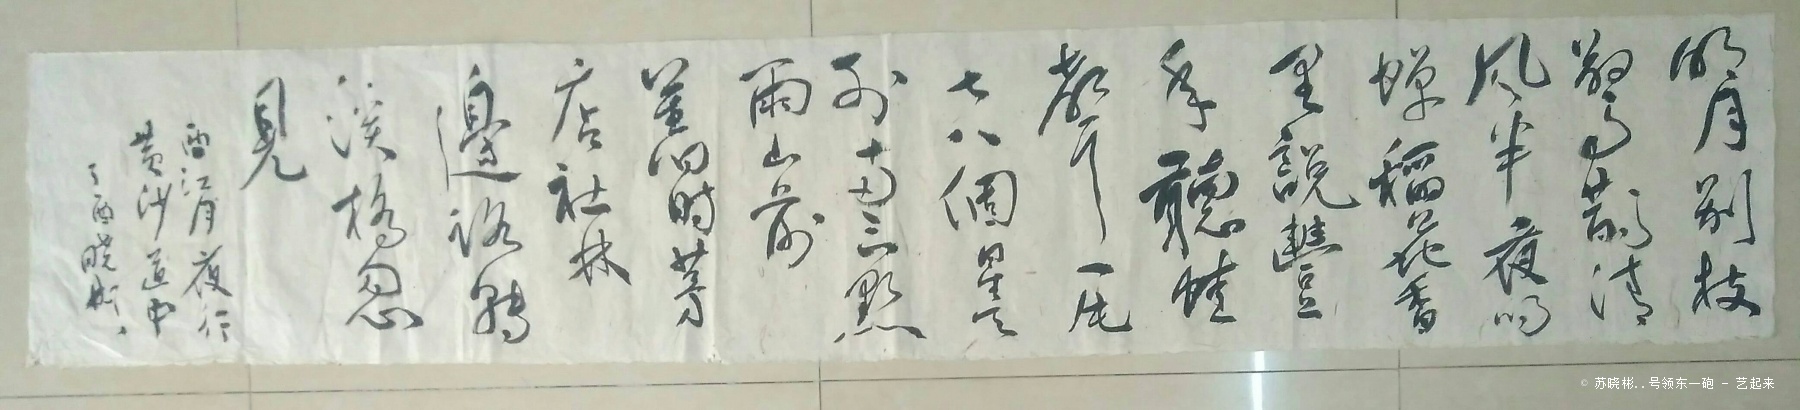 明月别枝
驚鳥鵲清
風半夜鳴
蟬稻花香
里説豐
年聽蛙
聲一片
七八個星天
外十雨三點
雨山前
舊旧時茅
店社林
邊路轉
溪橋忽
見
西江月夜行
黄沙道中
丁酉曉彬
© 苏晓彬..号领东一砲 - 艺起来